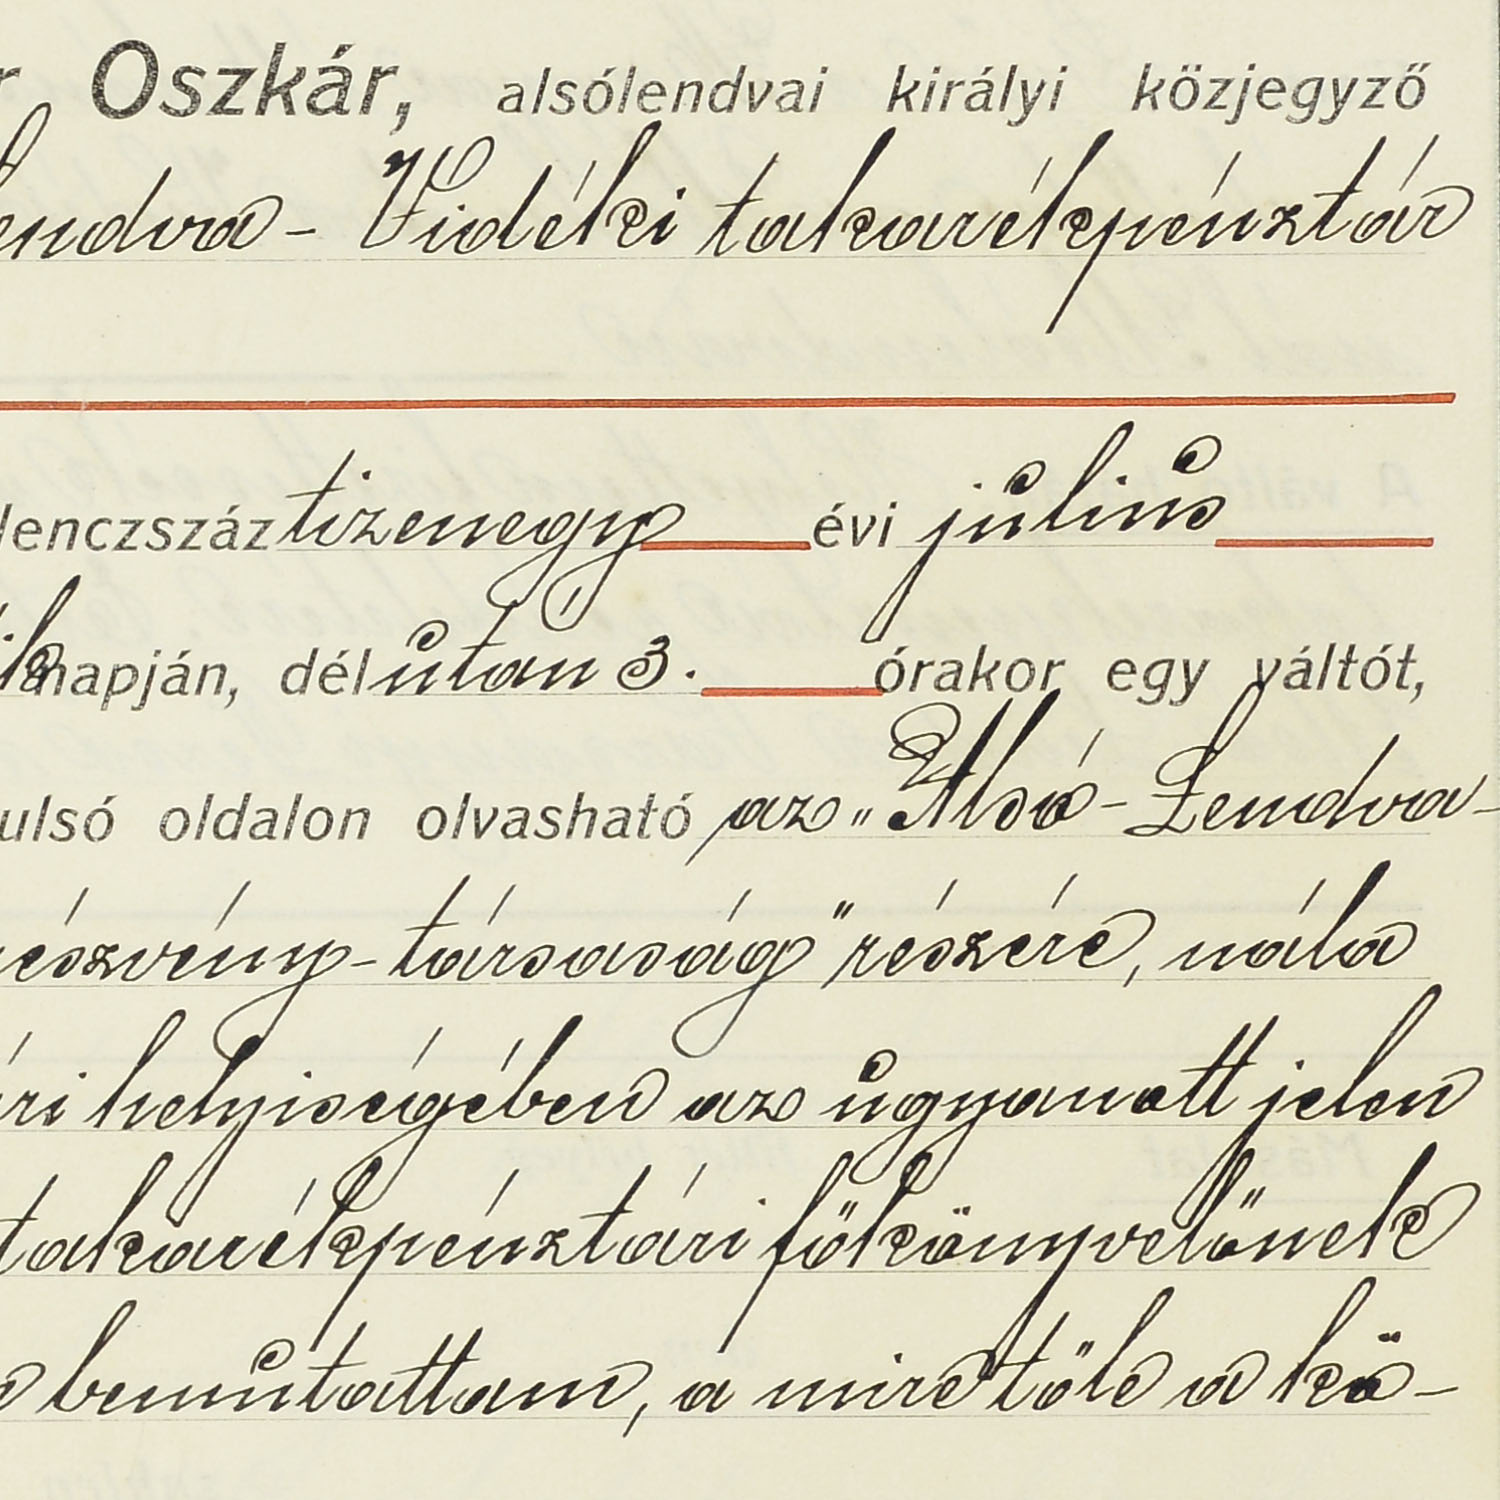 r Oszkár, alsólendvai királyi közjegyző
Lendva - Vidéki takarékpénztár
lenczszáz tizenegy évi július
ik napján, délután 3. órakor egy váltót,
ulsó oldalon olvasható az "Alsó-Lendva-
részvény-társaság" részére, nála
ári helyiségében az ugyanott jelen
takarékpénztári főkönyvelőnek
bemutattam, a mire tőle a kö-